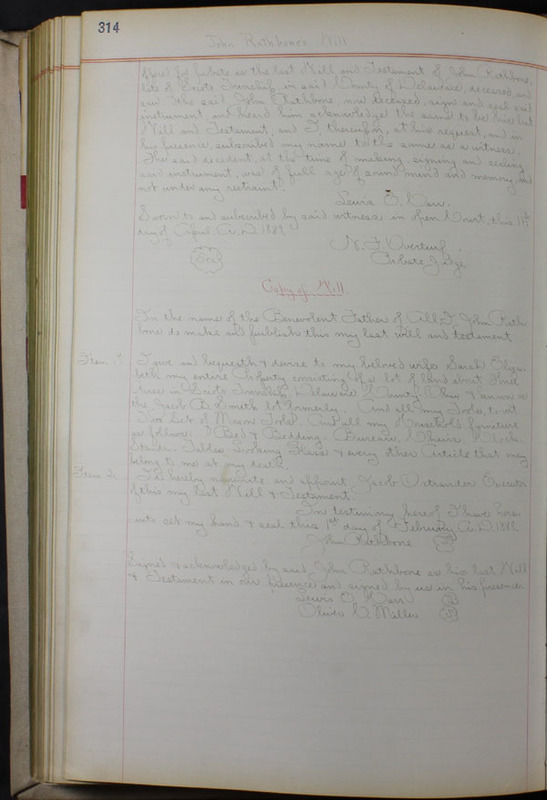 314
John Rathbone's Will
for Probate as the last Will and Testament of John Rathbone,
late of Scioto Township in said County of Delaware, deceased and
saw the said John Rathbone, now deceased, sign and seal said
instrument and heard him acknowledge the same to be his last
Will and Testament, and I, thereupon, at his request, and in
his presence, subscribed my name to the same as a witness.
The said decedent, at the time of making, signing and sealing
said instrument, was of full age of sound mind and memory, and
not under any restraint.
Lewis O.
Sworn to and subscribed by said witness in open Court, this
day of April A.D. 1882
N. F. Overturf
Probate Judge
Copy of Will
In the name of the Benevolent Father of All I John Rath-
bone do make and publish this my last will and testament
Item 1st. I give and bequeath & devise to my beloved wife Sarah Eliza-
beth my entire Property consisting of a lot of land about three
Acres in Scioto Township Delaware County Ohio & known as
the Jacob B. Smith lot formerly. And all my Tools, to wit
Two Set of Mason Tools. And all my Household furniture
as follows. Bed & Bedding. Bureau. Chairs. Clock.
Stands. Tables Looking Glass & every other Article that may
belong to me at my death.
Item 2. I do hereby nominate and appoint Jacob Ostrander Executor
of this my last Will & Testament.
In testimony hereof I have here-
unto set my hand & seal this 1st day of February A.D. 1882
John Rathbone
Signed & acknowledged by said John Rathbone as his last Will
& Testament in our presence and signed by us in his presence
Lewis O.
Oliver C. Miller